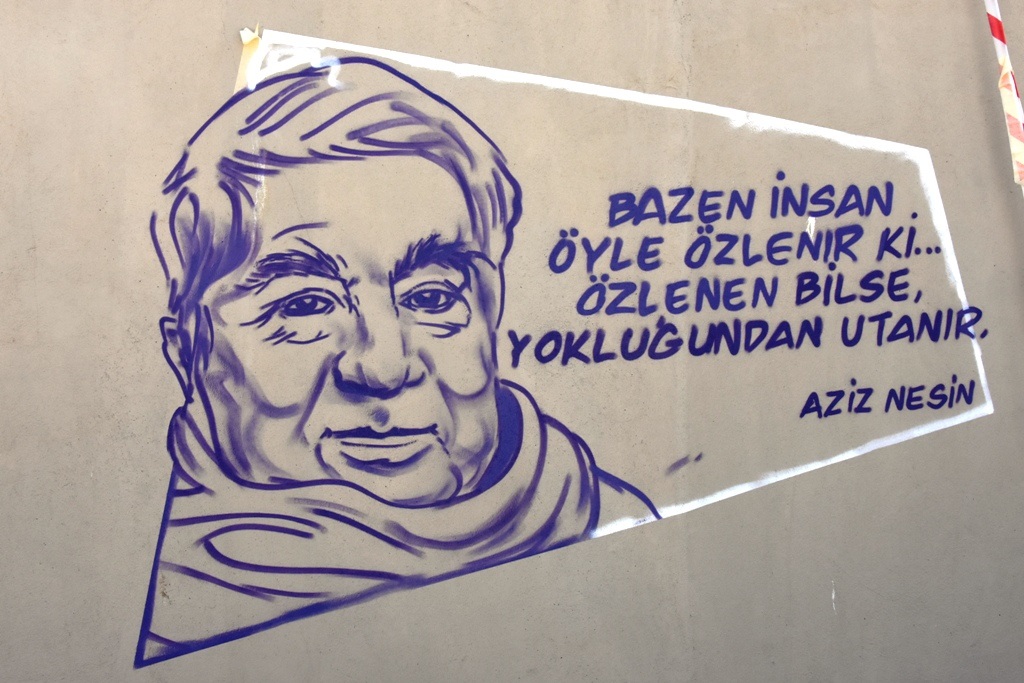 BAZEN İNSAN
ÖYLE ÖZLENİR Kİ...
ÖZLENEN BİLSE,
YOKLUĞUNDAN UTANIR.
AZİZ NESİN